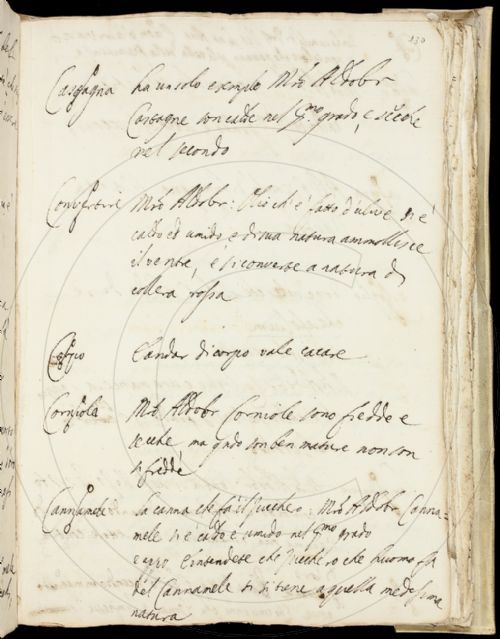 130
Castagna ha un solo exemplo Mro Aldobr
Castagne son calde nel pmo grado, e secche
nel secondo
Convertire Mro Aldobr: Olio ch'è fatto d'ulive si è
caldo ed umido e di sua natura ammollisce
il ventre, e si converte a natura di
collera rossa
Corpo L'andar di corpo vale cacare
Corniola Mro Aldobr Corniole sono fredde e
secche ma qudo son ben mature non son
sì fredde
Cannamele la canna che fa il zucchero: Mro Aldobr Canna-
mele si è caldo e umido nel pmo grado
e appo. E intendete che zucchero che huomo fa
del Cannamele si si tiene a quella medesima
natura